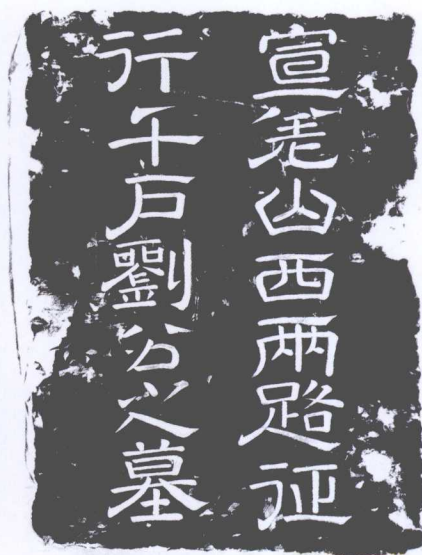 宣差山西兩路征
行千戶劉公之墓